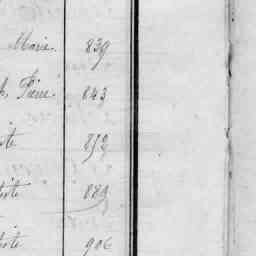 Marie. 839
h, Pierre 843
ste 852
tiste 889
tiste 906